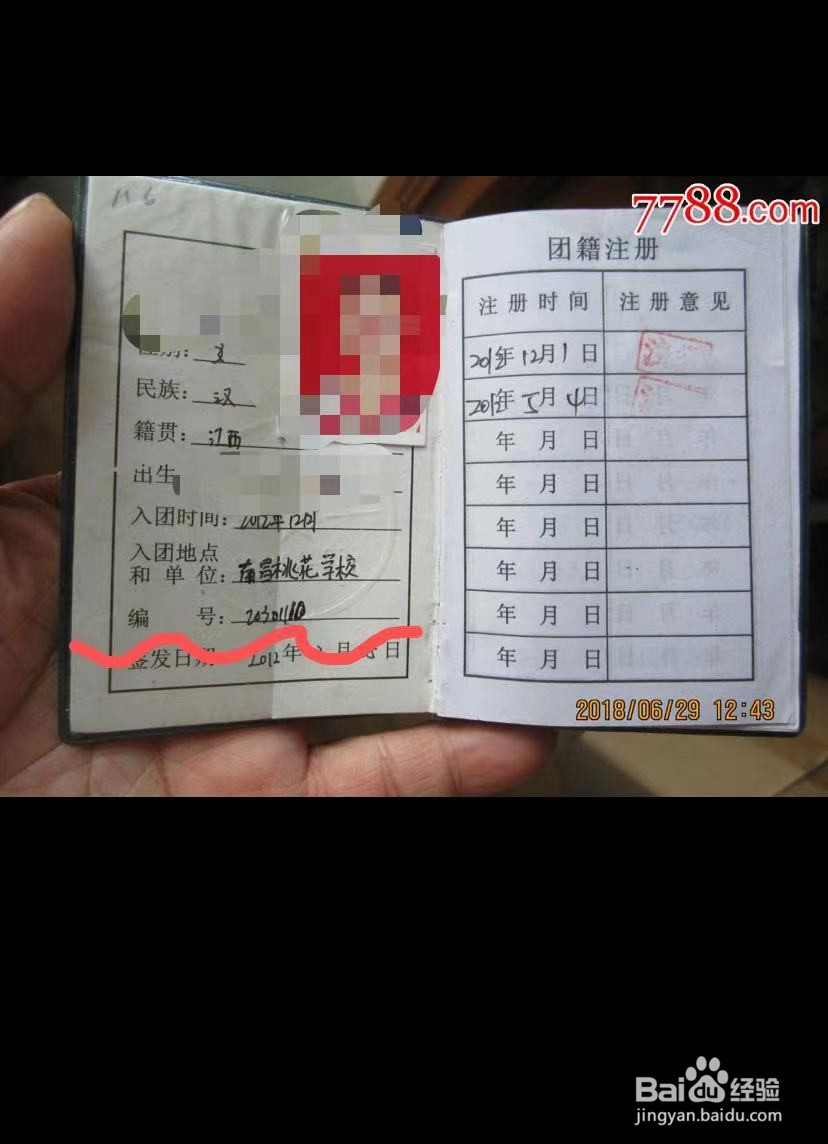 7788.com
性别：女
民族：汉
籍贯：江西
出生
入团时间：2012年12月
入团地点
和单位：南昌桃花学校
编号：
签发日期 2012年 月 日
团籍注册
注册时间 注册意见
年12月1日
年5月4日
年 月 日
年 月 日
年 月 日
年 月 日
年 月 日
年 月 日
2018/06/29 12:43
Baidu经验
jingyan.baidu.com